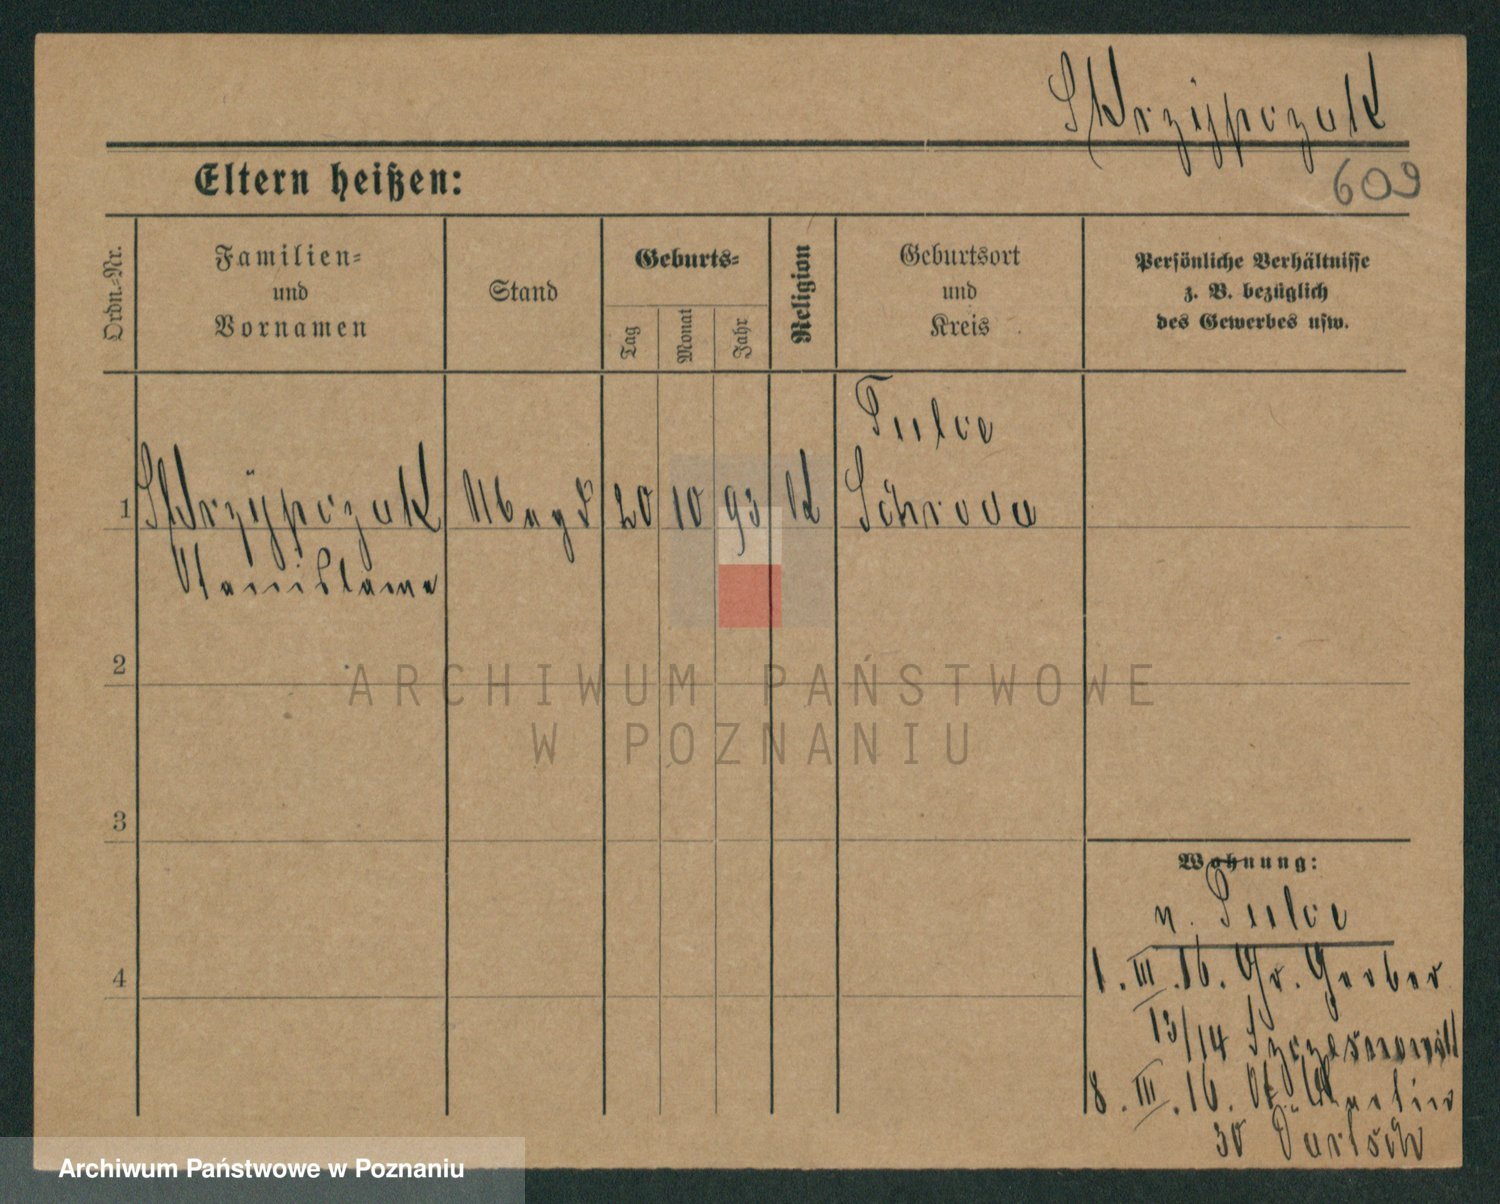 Skrzypczak
609
Eltern heißen:
Ordn.-Nr.
Familien-
und
Vornamen
Stand
Geburts-
Tag
Monat
Jahr
Religion
Geburtsort
und
Kreis
Persönliche Verhältnisse
z. B. bezüglich
des Gewerbes usw.
Tulce
1 Skrzypczak Magd 20 10 93 k Schroda
Stanislawa
2
ARCHIWUM PAŃSTWOWE
W POZNANIU
3
Wohnung:
n. Tulce
4
1. III. 16. Gr. Gerber
13/14
8. III. 16. St. Martin
30
Archiwum Państwowe w Poznaniu